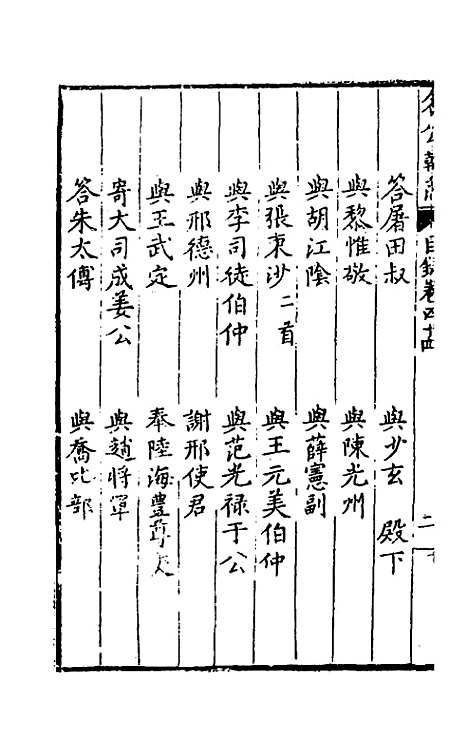 答屠田叔 與少玄 殿下
與黎惟敬 與陳光州
與胡江陰 與薛憲副
與張東沙二首 與王元美伯仲
與李司徒伯仲 與范光禄于公
與邢德州 謝邢使君
與王武定 奉陸海豐尊
寄大司成姜公 與趙將軍
答朱太傅 與喬比部
目錄卷四十四 二